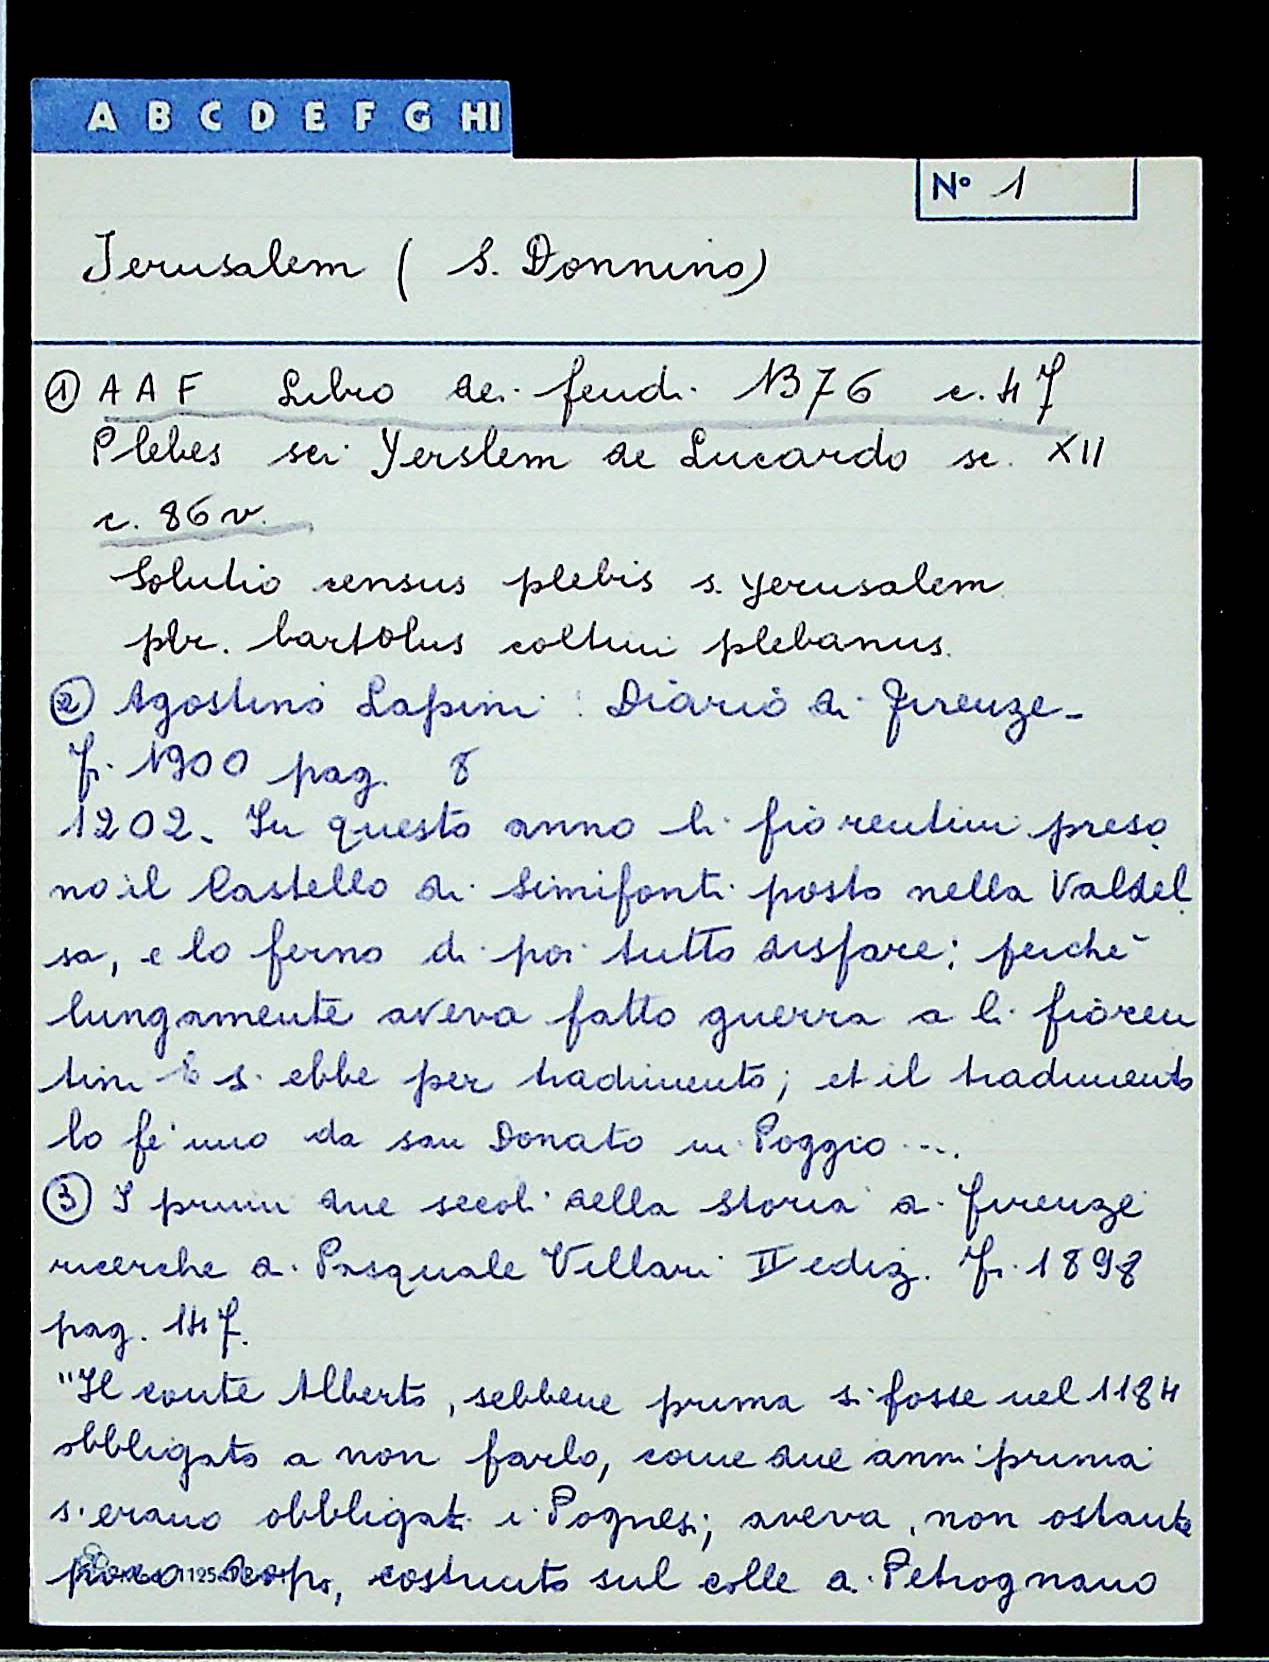 A B C D E F G HI
N° 1
Jerusalem ( S. Donnino)
① A A F Libro dei feudi 1376 c. 47
Plebes sci Yerslem de Lucardo sc. XII
c. 86 v.
Solutio census plebis s. Yerusalem
pbr. bartolus coltini plebanus.
② Agostino Lapini : Diario di Firenze -
Fi. 1900 pag. 8
1202. In questo anno li fiorentini preso
no il Castello di Simifonti posto nella Valdel
sa, e lo ferno di poi tutto disfare; perchè
lungamente aveva fatto guerra a li fioren
tini E si ebbe per tradimento; et il tradimento
lo fe' uno da san Donato in Poggio ...
③ I primi due secoli della storia di Firenze
ricerche di Pasquale Villari II ediz. Fi. 1898
pag. 147.
"Il conte Alberto, sebbene prima si fosse nel 1184
obbligato a non farlo, come due anni prima
s'erano obbligati i Pognesi; aveva, non ostante
poco dopo, costruito sul colle di Petrognano